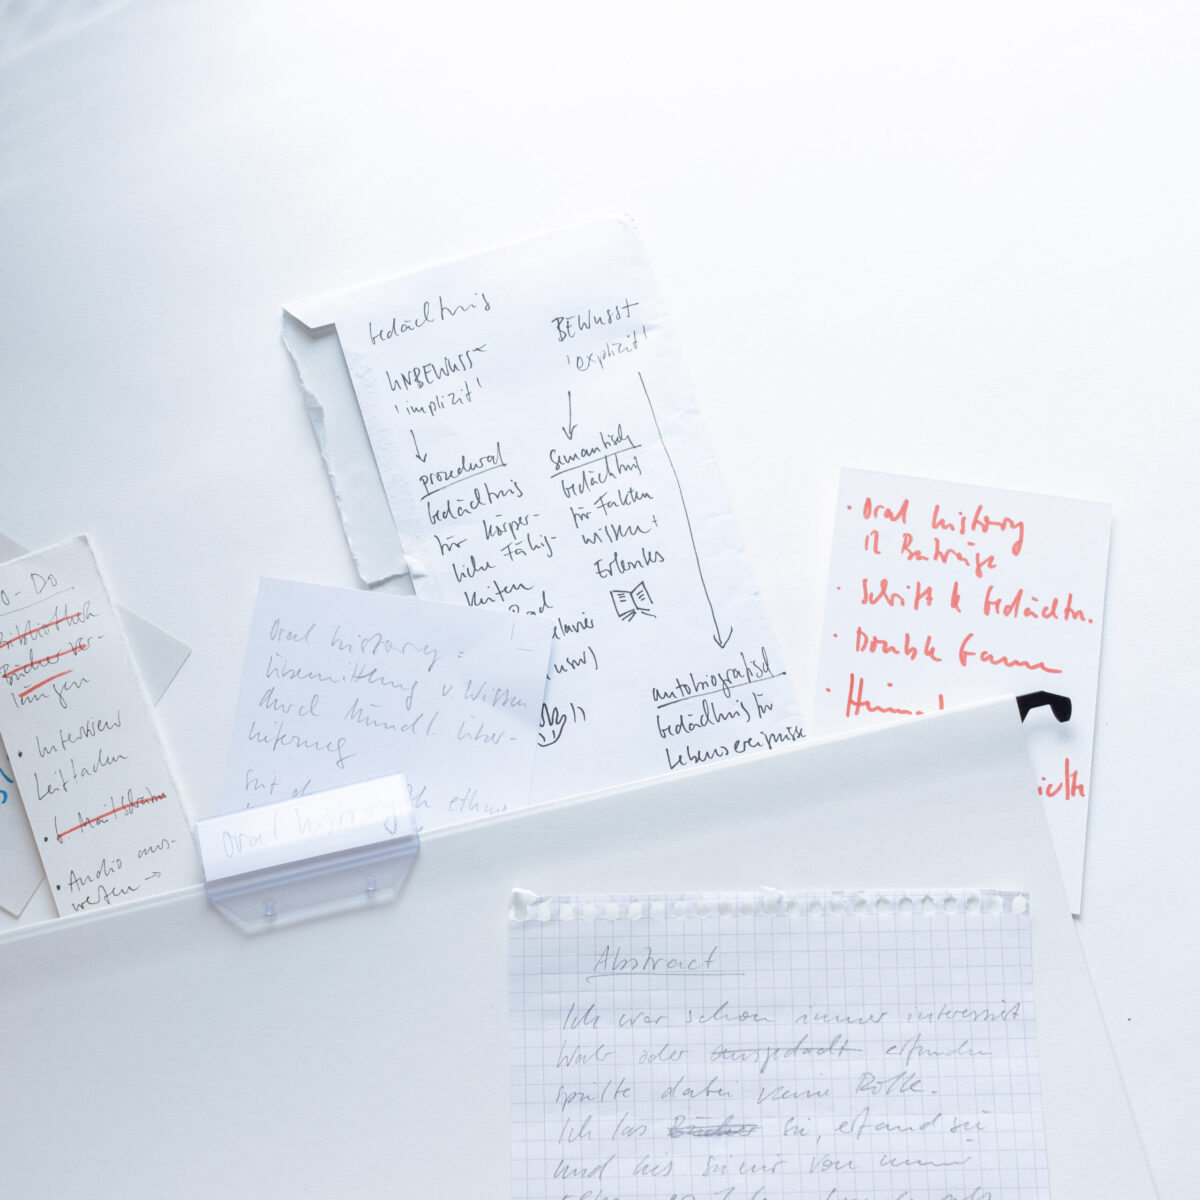 Gedächtnis
UNBEWUSST
'implizit'
↓
prozedural
Gedächtnis
für körper-
liche Fähig-
keiten
Rad
Klavier
usw)
BEWUSST
'explizit'
↓
Semantisch
Gedächtnis
für Fakten
wissen +
Erlerntes
autobiografisch
Gedächtnis für
Lebensereignisse
o-Do
Bibliothek
Bücher ver-
längern
• Interview
Leitfaden
• Audio aus-
werten →
Oral history =
Übermittlung v Wissen
durch mündl. Über-
lieferung
Oral history
• Oral history
12 Beiträge
• Schrift & Gedächtn.
• Double Game
Abstract
Ich war schon immer interessiert
Wahr oder ausgedacht erfunden
spielte dabei keine Rolle.
Ich las Bücher sie, erfand sie
und lies sie mir von